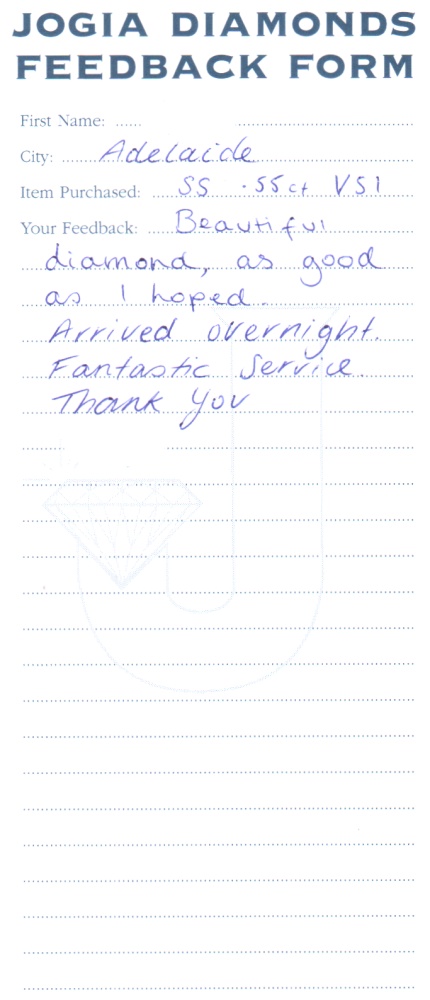 JOGIA DIAMONDS
FEEDBACK FORM
First Name:
City: Adelaide
Item Purchased: SS .55ct VS1
Your Feedback: Beautiful
diamond, as good
as I hoped.
Arrived overnight.
Fantastic Service.
Thank You